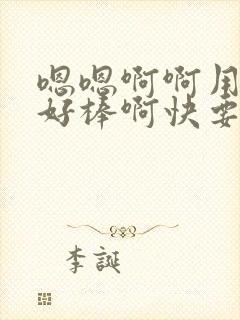 嗯嗯啊啊用
好棒啊快要
李誕